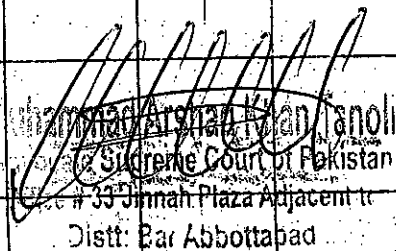 Muhammad Arshad Khan Tanoli
Supreme Court of Pakistan
# 33 Jinnah Plaza Adjacent to
Distt: Bar Abbottabad